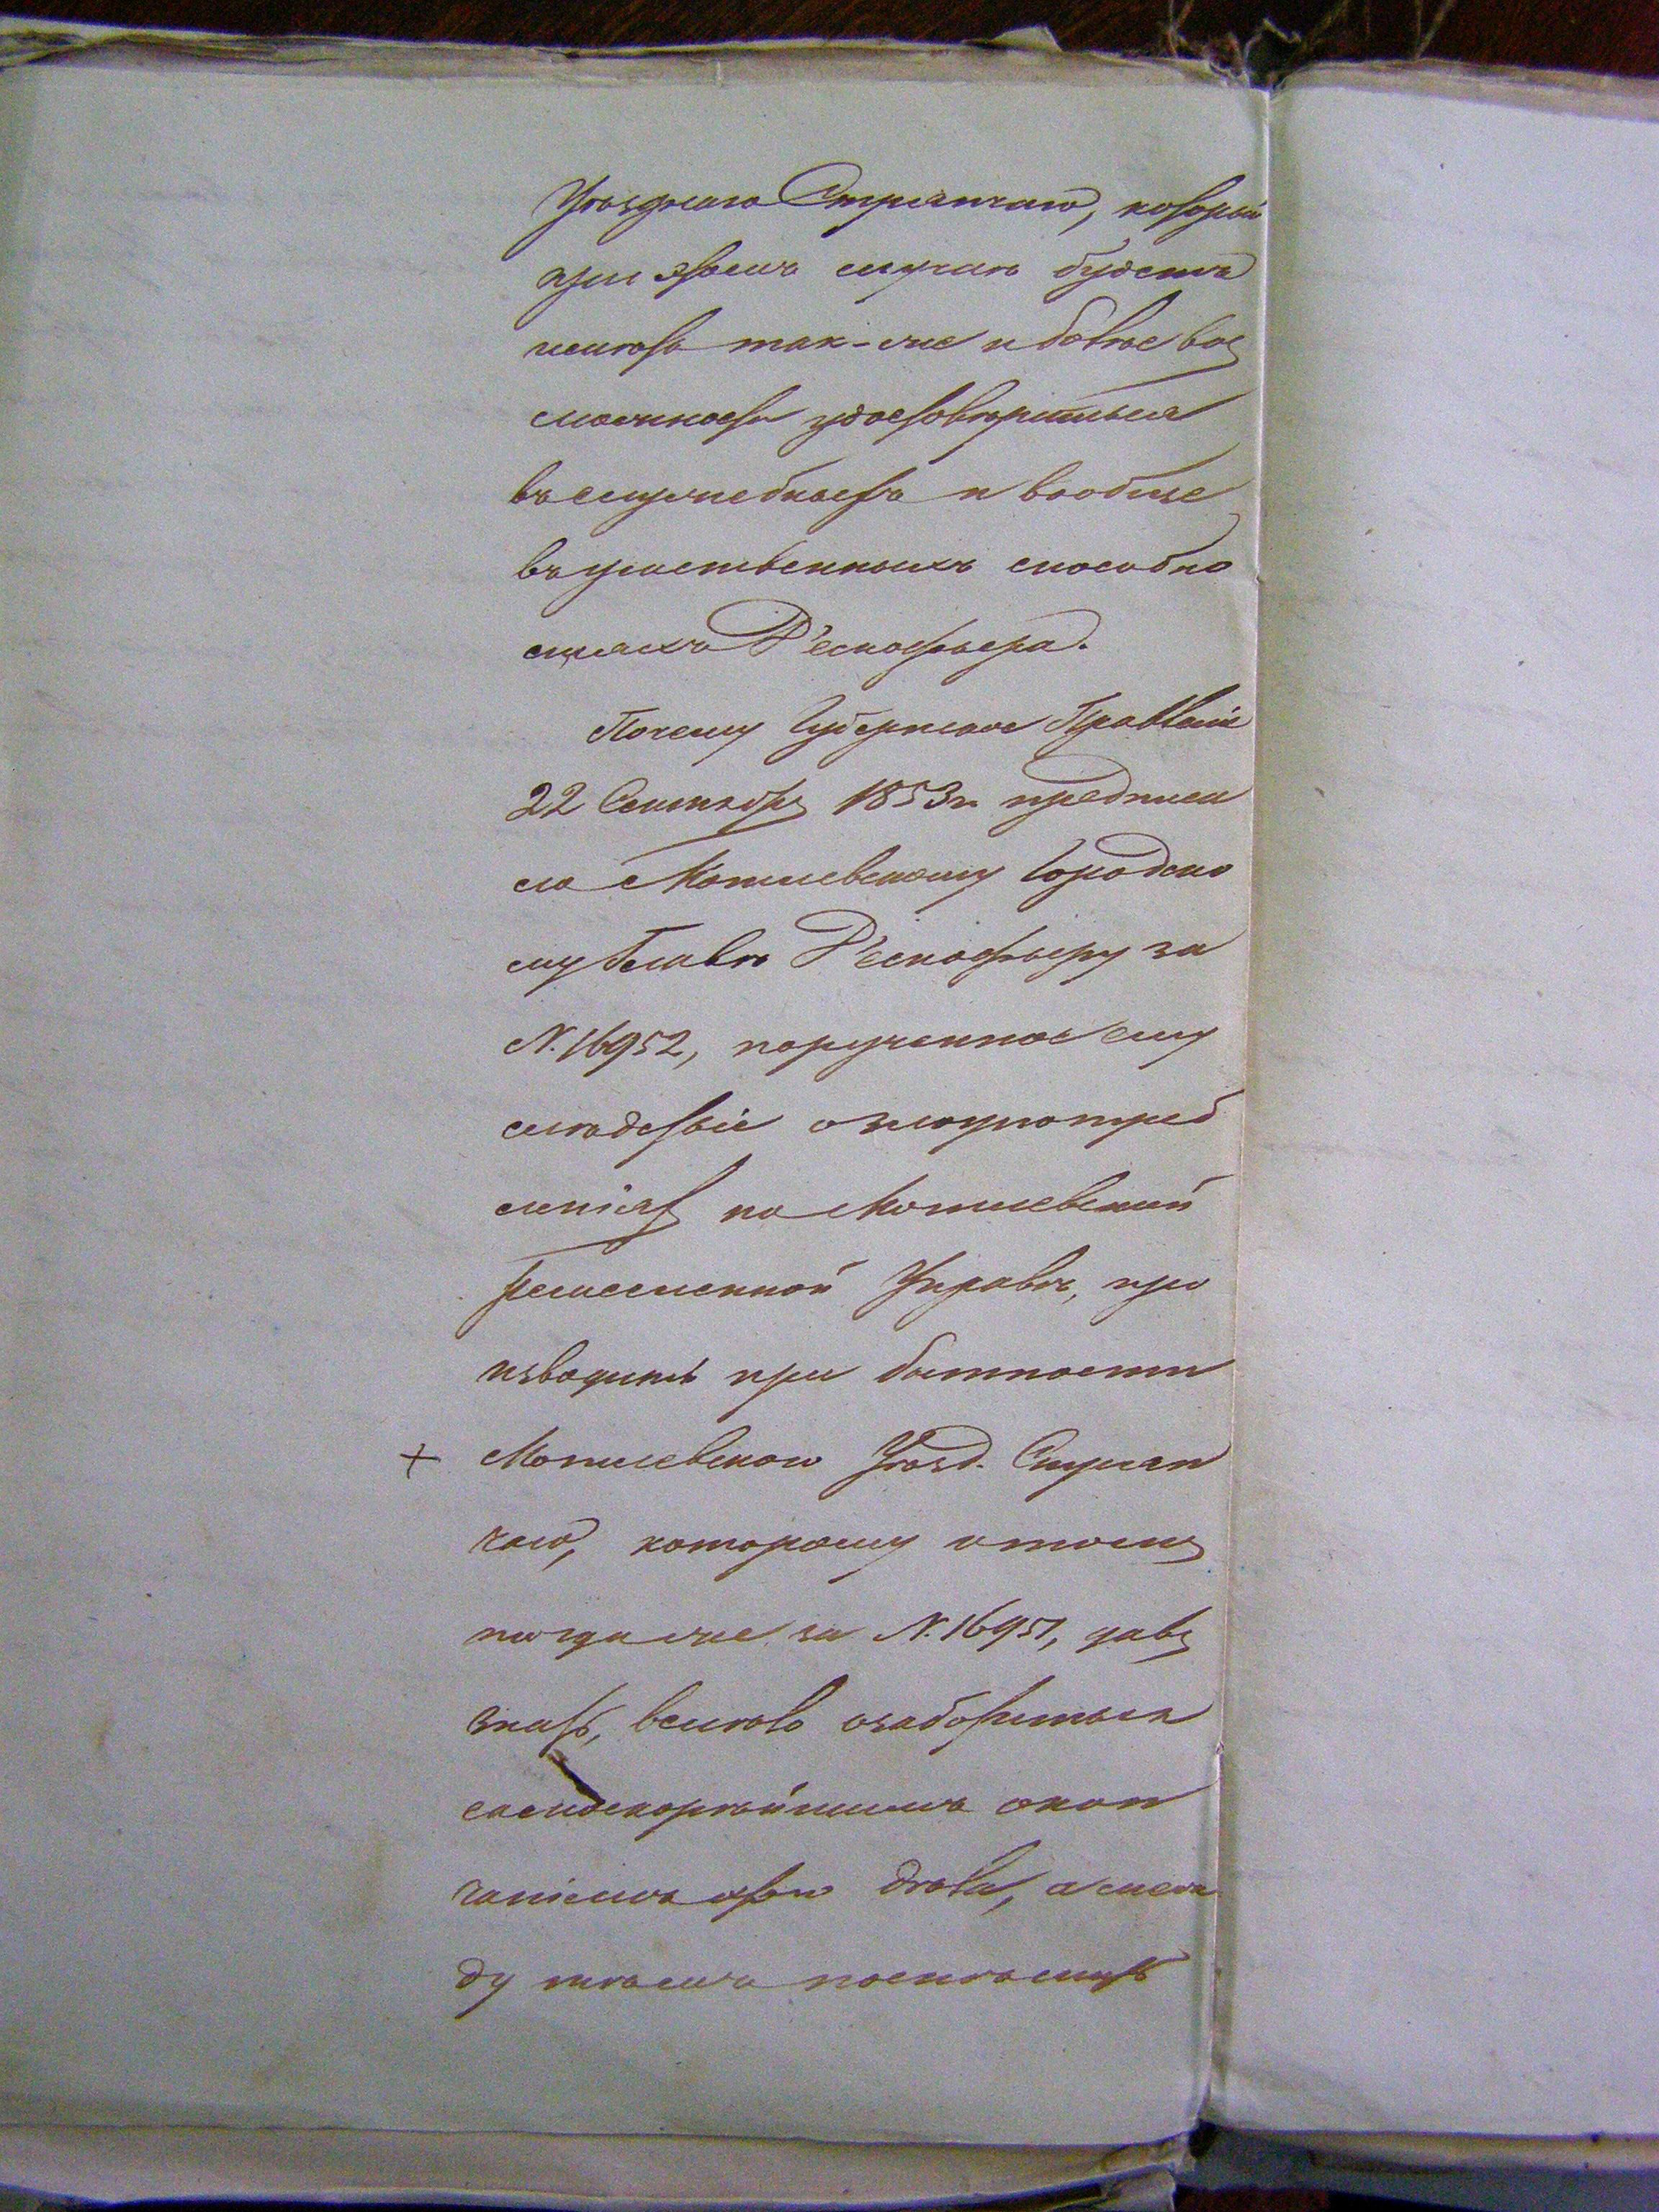 Уѣзднаго Стряпчаго, который
при этомъ случаѣ будетъ
имѣть так-же и болѣе воз
можности удостовѣриться
въ служебныхъ и вообще
въ умственныхъ способно
стяхъ Р'ескотьера.
Почему Губернское Правленіе
22 Сентября 1853 г. предписа
ло Могилевскому Городско
му Главѣ Р'ескотьеру за
№ 16952, порученное ему
слѣдствіе о злоупотреб
леніях по Могилевской
Ремесленной Управѣ, про
изводить при бытности
+ Могилевскаго Уѣзд. Стряп
чаго, которому о томъ
тогда же за № 16951, давъ
знать, велѣло озаботиться
скорѣйшимъ окон
чаніемъ этого дѣла, а меж
ду тѣмъ